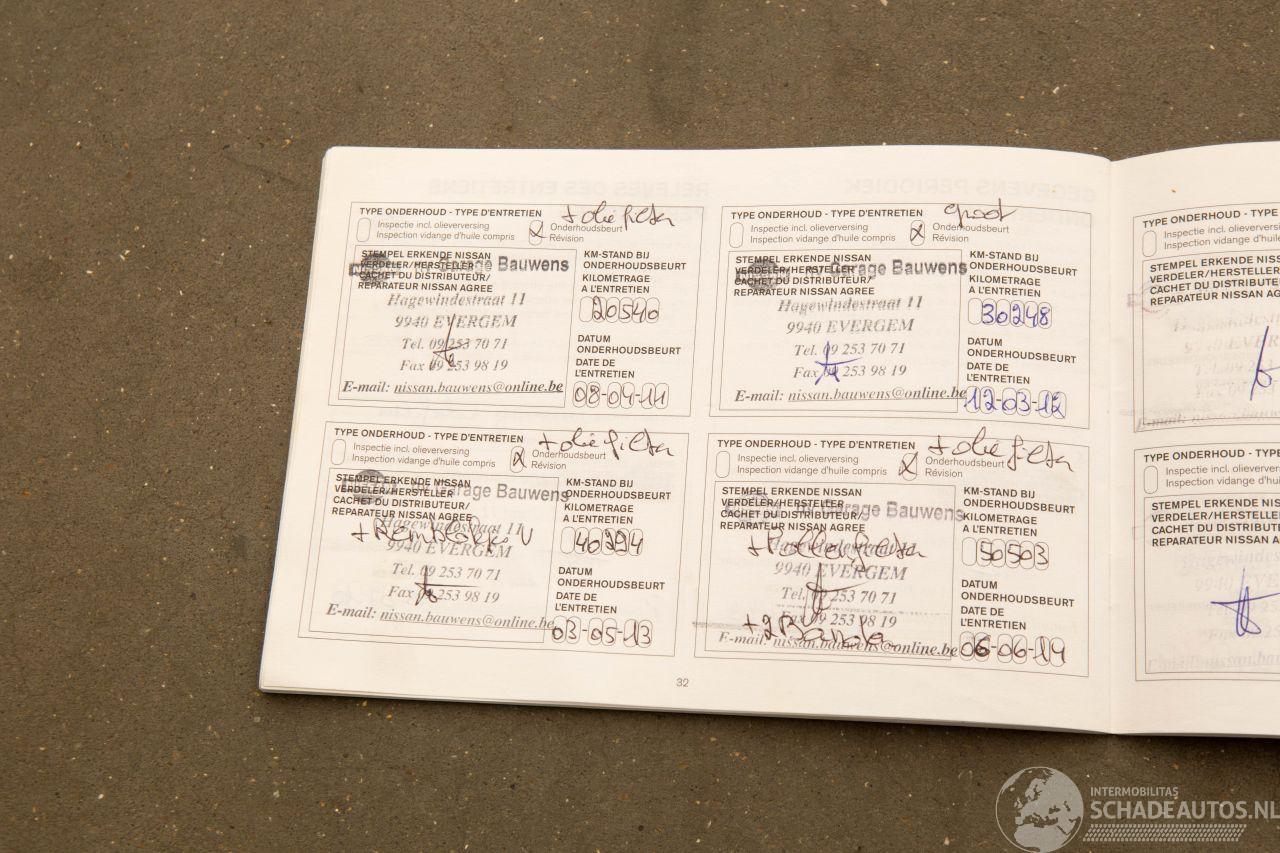 TYPE ONDERHOUD - TYPE D'ENTRETIEN + oliefilter
Inspectie incl. olieverversing
Inspection vidange d'huile compris
x Onderhoudsbeurt
Révision
STEMPEL ERKENDE NISSAN
VERDELER/HERSTELLER
CACHET DU DISTRIBUTEUR/
REPARATEUR NISSAN AGREE
Garage Bauwens
Hagewindestraat 11
9940 EVERGEM
Tel. 09 253 70 71
Fax 09 253 98 19
E-mail: nissan.bauwens@online.be
KM-STAND BIJ
ONDERHOUDSBEURT
KILOMETRAGE
A L'ENTRETIEN
20540
DATUM
ONDERHOUDSBEURT
DATE DE
L'ENTRETIEN
08-04-11
TYPE ONDERHOUD - TYPE D'ENTRETIEN groot
Inspectie incl. olieverversing
Inspection vidange d'huile compris
x Onderhoudsbeurt
Révision
STEMPEL ERKENDE NISSAN
VERDELER/HERSTELLER
CACHET DU DISTRIBUTEUR/
REPARATEUR NISSAN AGREE
Garage Bauwens
Hagewindestraat 11
9940 EVERGEM
Tel. 09 253 70 71
Fax 09 253 98 19
E-mail: nissan.bauwens@online.be
KM-STAND BIJ
ONDERHOUDSBEURT
KILOMETRAGE
A L'ENTRETIEN
30248
DATUM
ONDERHOUDSBEURT
DATE DE
L'ENTRETIEN
12-03-12
TYPE ONDERHOUD - TYPE D'ENTRETIEN + oliefilter
Inspectie incl. olieverversing
Inspection vidange d'huile compris
x Onderhoudsbeurt
Révision
STEMPEL ERKENDE NISSAN
VERDELER/HERSTELLER
CACHET DU DISTRIBUTEUR/
REPARATEUR NISSAN AGREE
Garage Bauwens
Hagewindestraat 11
+ Remblokken V
9940 EVERGEM
Tel. 09 253 70 71
Fax 09 253 98 19
E-mail: nissan.bauwens@online.be
KM-STAND BIJ
ONDERHOUDSBEURT
KILOMETRAGE
A L'ENTRETIEN
40294
DATUM
ONDERHOUDSBEURT
DATE DE
L'ENTRETIEN
03-05-13
TYPE ONDERHOUD - TYPE D'ENTRETIEN + oliefilter
Inspectie incl. olieverversing
Inspection vidange d'huile compris
x Onderhoudsbeurt
Révision
STEMPEL ERKENDE NISSAN
VERDELER/HERSTELLER
CACHET DU DISTRIBUTEUR/
REPARATEUR NISSAN AGREE
Garage Bauwens
Hagewindestraat 11
+ Pollenfilter
9940 EVERGEM
Tel. 09 253 70 71
Fax 09 253 98 19
+ 2 Banden
E-mail: nissan.bauwens@online.be
KM-STAND BIJ
ONDERHOUDSBEURT
KILOMETRAGE
A L'ENTRETIEN
50503
DATUM
ONDERHOUDSBEURT
DATE DE
L'ENTRETIEN
06-06-14
32
TYPE ONDERHOUD - TYPE
Inspectie incl. olieverversing
Inspection vidange d'huile
STEMPEL ERKENDE NISSAN
VERDELER/HERSTELLER
CACHET DU DISTRIBUTEUR/
REPARATEUR NISSAN AGREE
TYPE ONDERHOUD - TYPE
Inspectie incl. olieverversing
Inspection vidange d'huile
STEMPEL ERKENDE NISSAN
VERDELER/HERSTELLER
CACHET DU DISTRIBUTEUR/
REPARATEUR NISSAN AGREE
INTERMOBILITAS
SCHADEAUTOS.NL